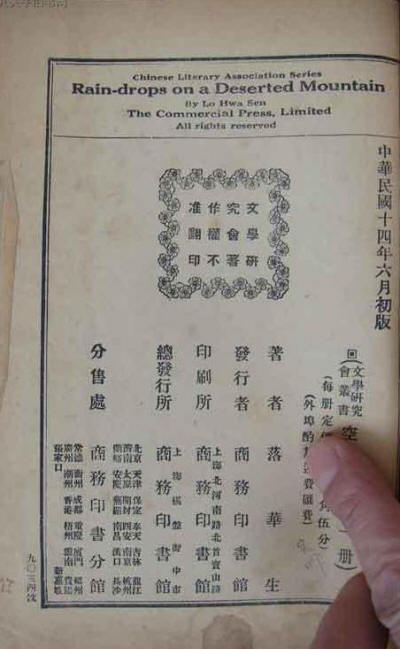 Chinese Literary Association Series
Rain-drops on a Deserted Mountain
By Lo Hwa Sen
The Commercial Press, Limited
All rights reserved
中華民國十四年六月初版
文學研
究會著
作權不
准翻印
文學研究
會叢書
空
冊)
(每册定
角伍分)
(外埠酌
費匯費)
著者 落華生
發行者 商務印書館
印刷所 上海北河南路北首寶山路
商務印書館
總發行所 上海棋盤街中市
商務印書館
分售處 商務印書分館
北京 天津 保定 奉天 吉林 龍江
濟南 太原 開封 西安 南京 杭州
安慶 蕪湖 南昌 漢口 長沙
常德 衡州 成都 重慶 廈門 福州
廣州 潮州 香港 梧州 雲南 貴陽
張家口 新嘉坡
九〇三四